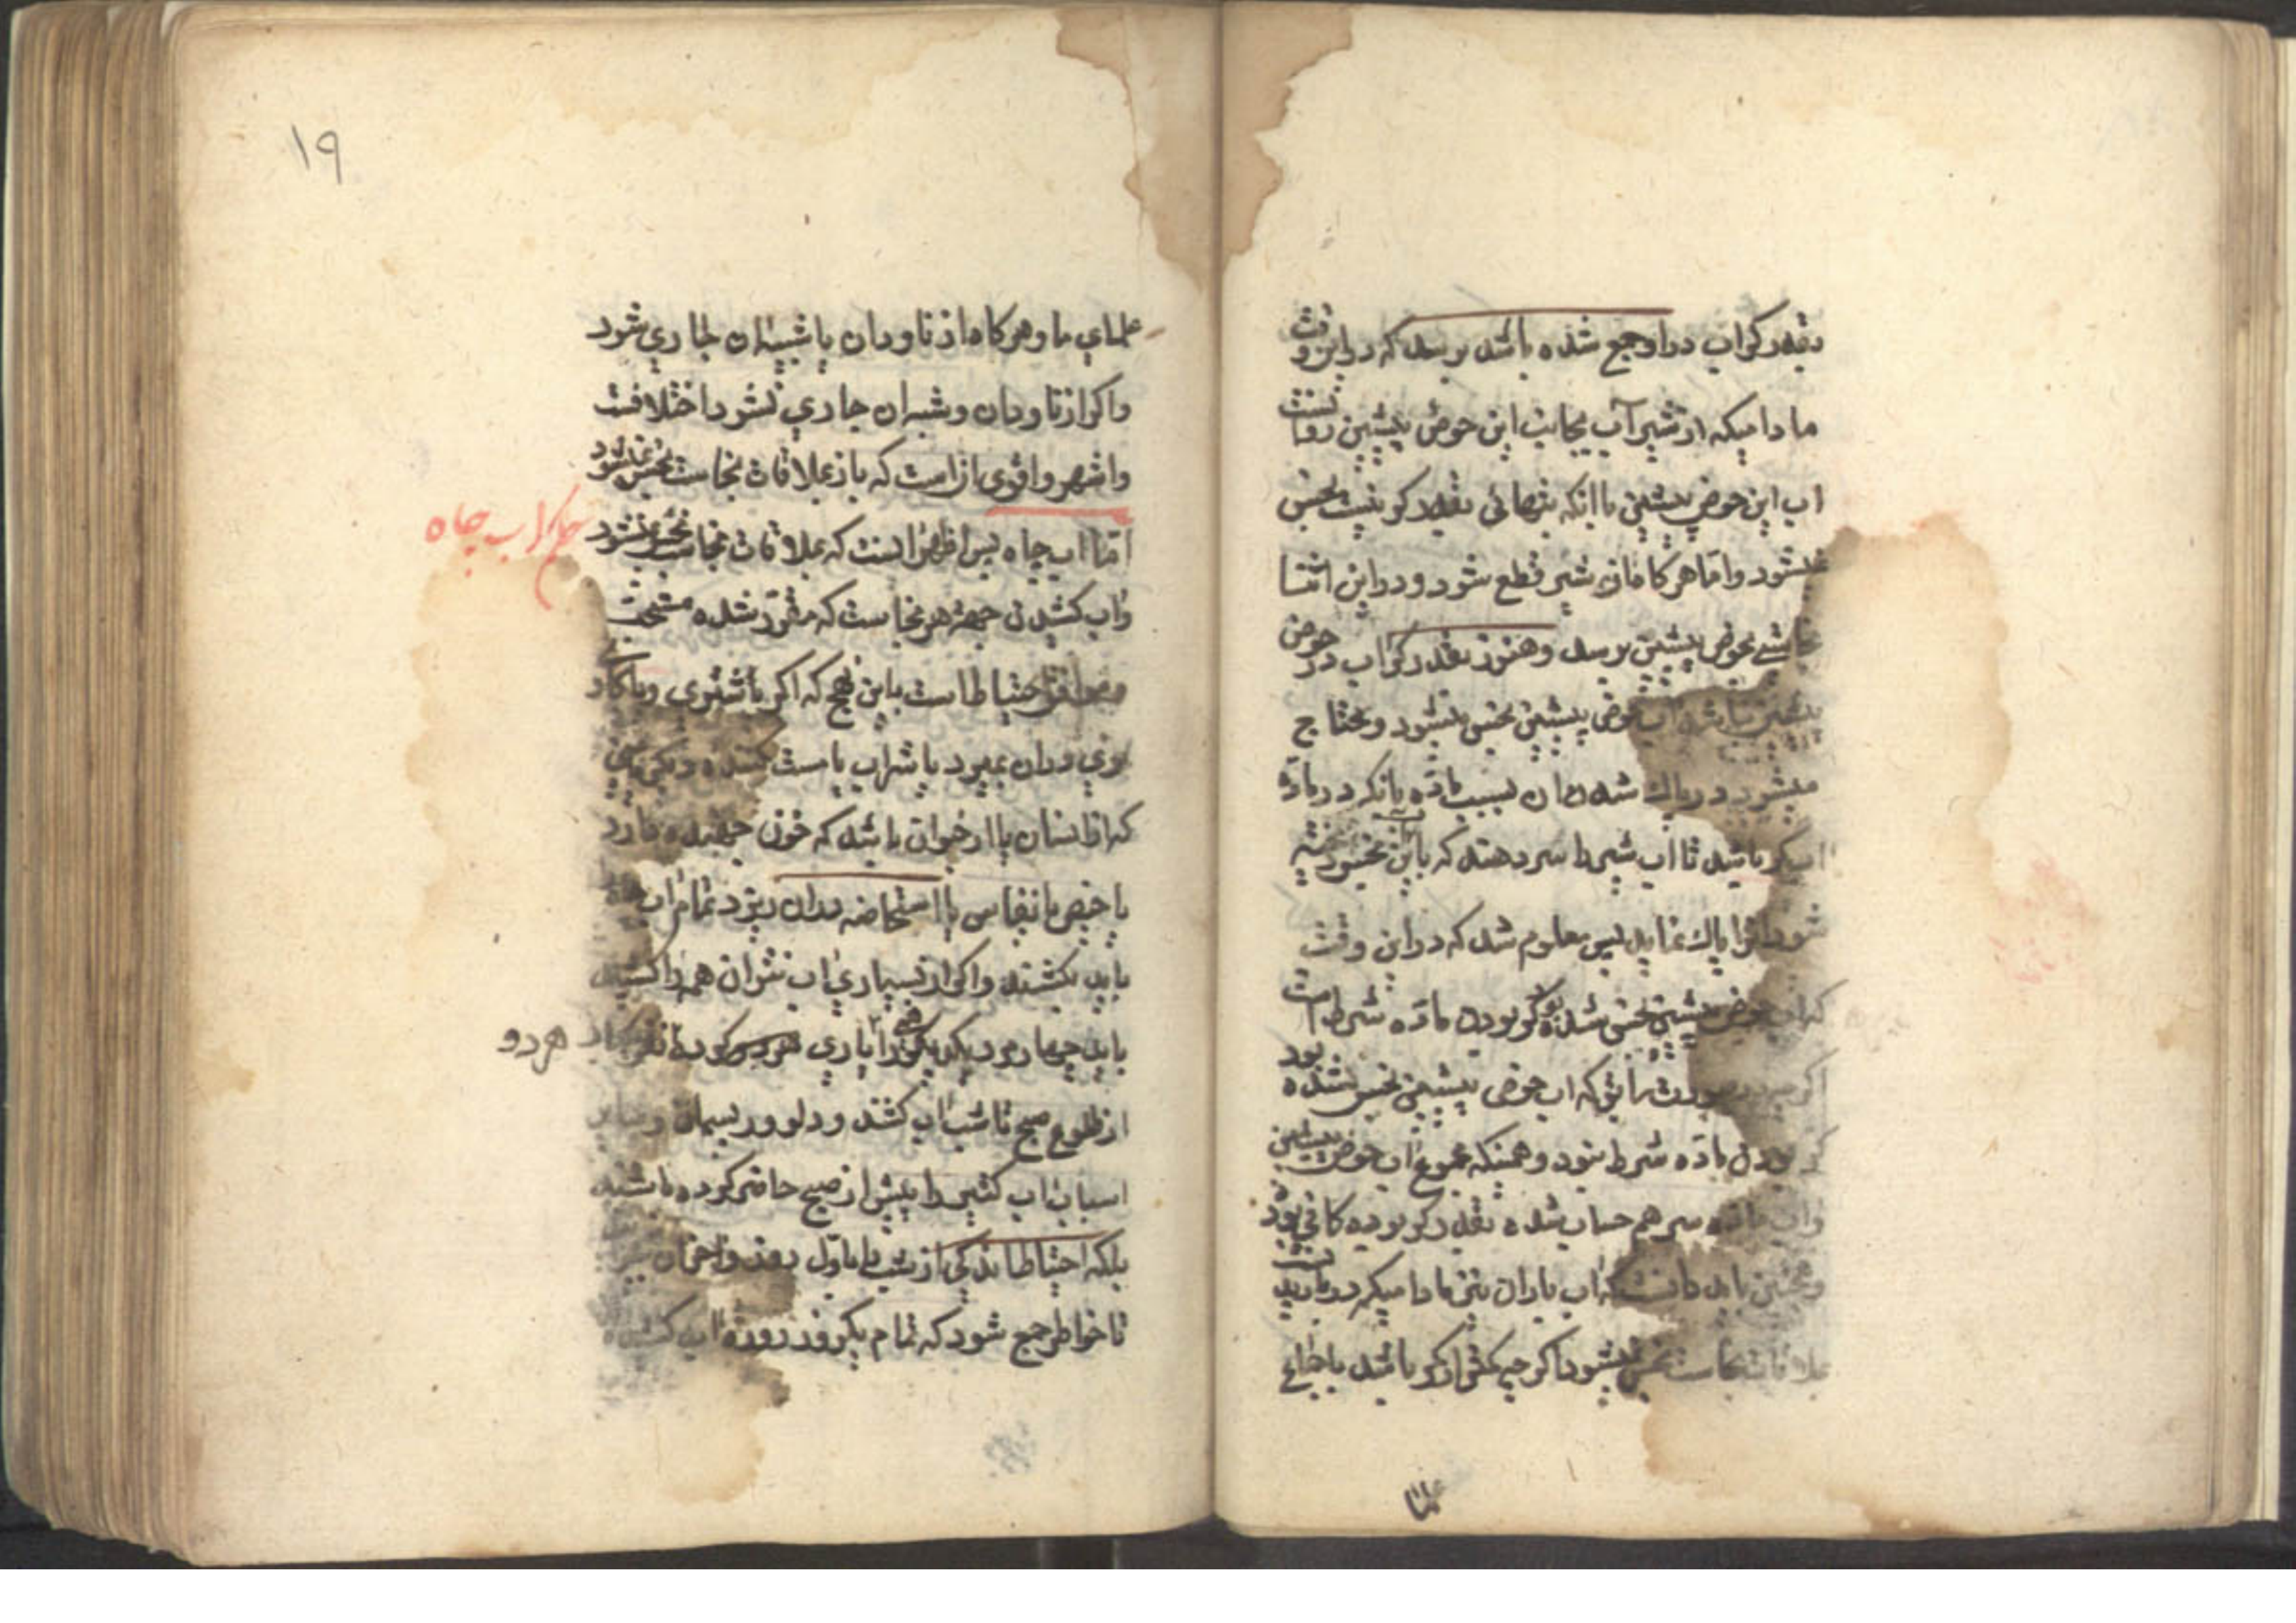 بقدر کر اب در او جمع شده باشد برسد که در این وقت
مادامیکه از شیر آب بجانب این حوض پیشین روانست
اب این حوض پیشین با انکه بتنهائی بقدر کر نیست نجس
نمیشود و اما هرکاه ان شیر قطع شود و در این اثنا
نجاستی بحوض پیشین برسد و هنوز بقدر کر اب در حوض
پیشین نباشد اب حوض پیشین نجس میشود و محتاج
میشود در پاك شدن ان بسبب ماده بانکه در ماده
اب کر باشد تا اب شیر را سر دهند که باین
شود انرا پاك نماید پس معلوم شد که در این وقت
که اب حوض پیشین نجس شده بود کر بودن ماده شرط است
اکرچه در صورت سابق که اب حوض پیشین نجس نشده بود
کر بودن ماده شرط نبود و همینکه مجموع اب حوض پیشین
و اب ماده سر هم حساب شده بقدر کر بوده کافی بود
و همچنین باید دانست که اب باران نیز مادامیکه در باریدنست
بملاقات نجاست نجس نمیشود اکرچه کمتر از کر باشد باجماع
علما
۱۹
علمای ما و هرکاه از ناودان یا شبیه ان جاری شود
و اکر از ناودان و شبه ان جاری نشود اختلافست
و اشهر و اقوی انست که باز بملاقات نجاست نجس نمیشود
حکم اب چاه
امّا اب چاه پس اظهر انست که بملاقات نجاست نجس نمیشود
و اب کشیدن جهة هر نجاست که مقرّر شده مستحبّ
و موافق احتیاط است باین نهج که اکر یا شتری و یا کاو
نری در ان بمیرد یا شراب یا مست کننده دیکر یا منی
که از انسان یا از حیوانی باشد که خون جهنده دارد
یا حیض یا نفاس یا استحاضه در ان ریزد تمام اب
باید بکشند و اکر از بسیاری اب نتوان همه را کشید
باید چهار مرد یکدیکر را یاری کرده
هر دو
از طلوع صبح تا شب اب کشند و دلو و ریسمان و سایر
اسباب اب کشی را پیش از صبح حاضر کرده باشند
بلکه احتیاطا اندکی از شب با اوّل روز و اخر ان
تا خواطر جمع شود که تمام یکروز روزه اب